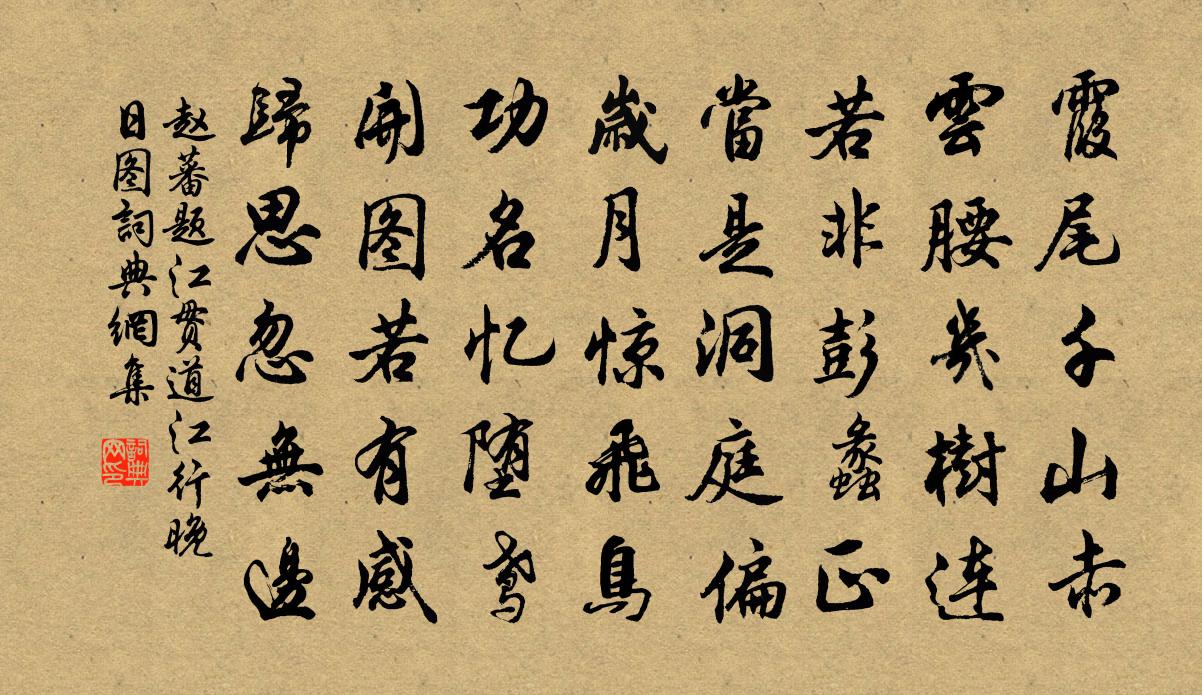 霞尾千山赤
雲腰幾樹連
若非彭蠡正
當是洞庭偏
歲月惊飛鳥
功名忆堕鳶
開图若有感
歸思忽無邊
赵蕃题江貫道江行晚
日图詞典網集
詞典
网印